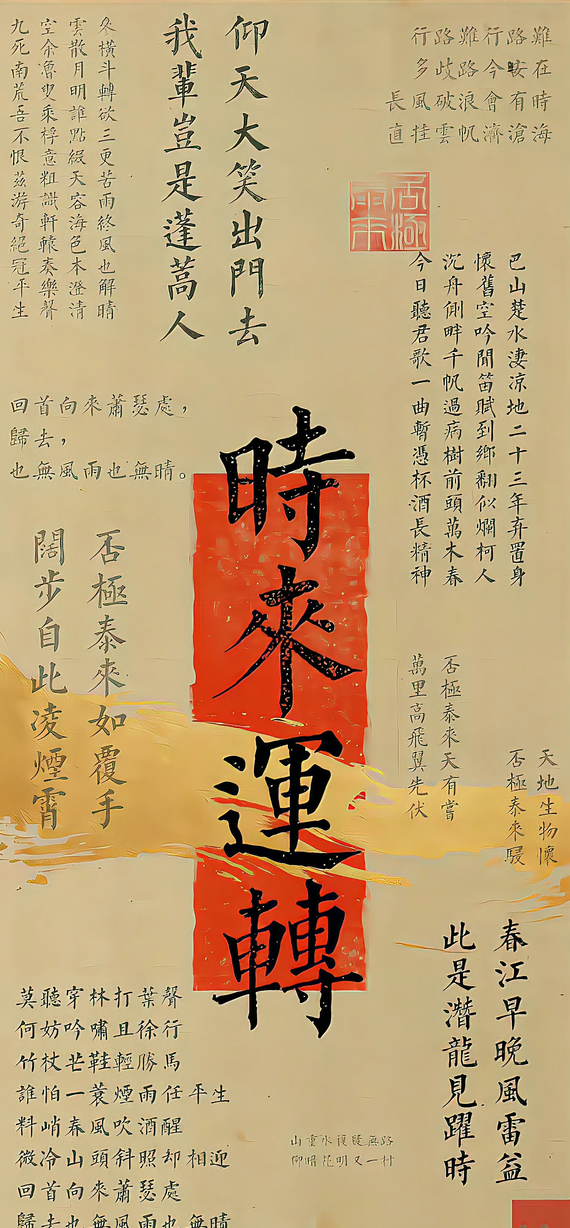 行路難行路難
多歧路今安在
長風破浪會有時
直挂雲帆濟滄海
仰天大笑出門去
我輩豈是蓬蒿人
參橫斗轉欲三更苦雨終風也解晴
雲散月明誰點綴天容海色本澄清
空余魯叟乘桴意粗識軒轅奏樂聲
九死南荒吾不恨茲游奇絕冠平生
否極
巴山楚水淒涼地二十三年弃置身
懷舊空吟聞笛賦到鄉翻似爛柯人
沉舟側畔千帆過病樹前頭萬木春
今日聽君歌一曲暫憑杯酒長精神
回首向來蕭瑟處，
歸去，
也無風雨也無晴。
時來運轉
否極泰來如覆手
闊步自此凌煙霄
否極泰來天有嘗
萬里高飛翼先伏
天地生物懷
否極泰來騣
春江早晚風雷益
此是潛龍見躍時
莫聽穿林打葉聲
何妨吟嘯且徐行
竹杖芒鞋輕勝馬
誰怕一蓑煙雨任平生
料峭春風吹酒醒
微冷山頭斜照却相迎
回首向來蕭瑟處
歸去也無風雨也無晴
山重水複疑無路
柳暗花明又一村